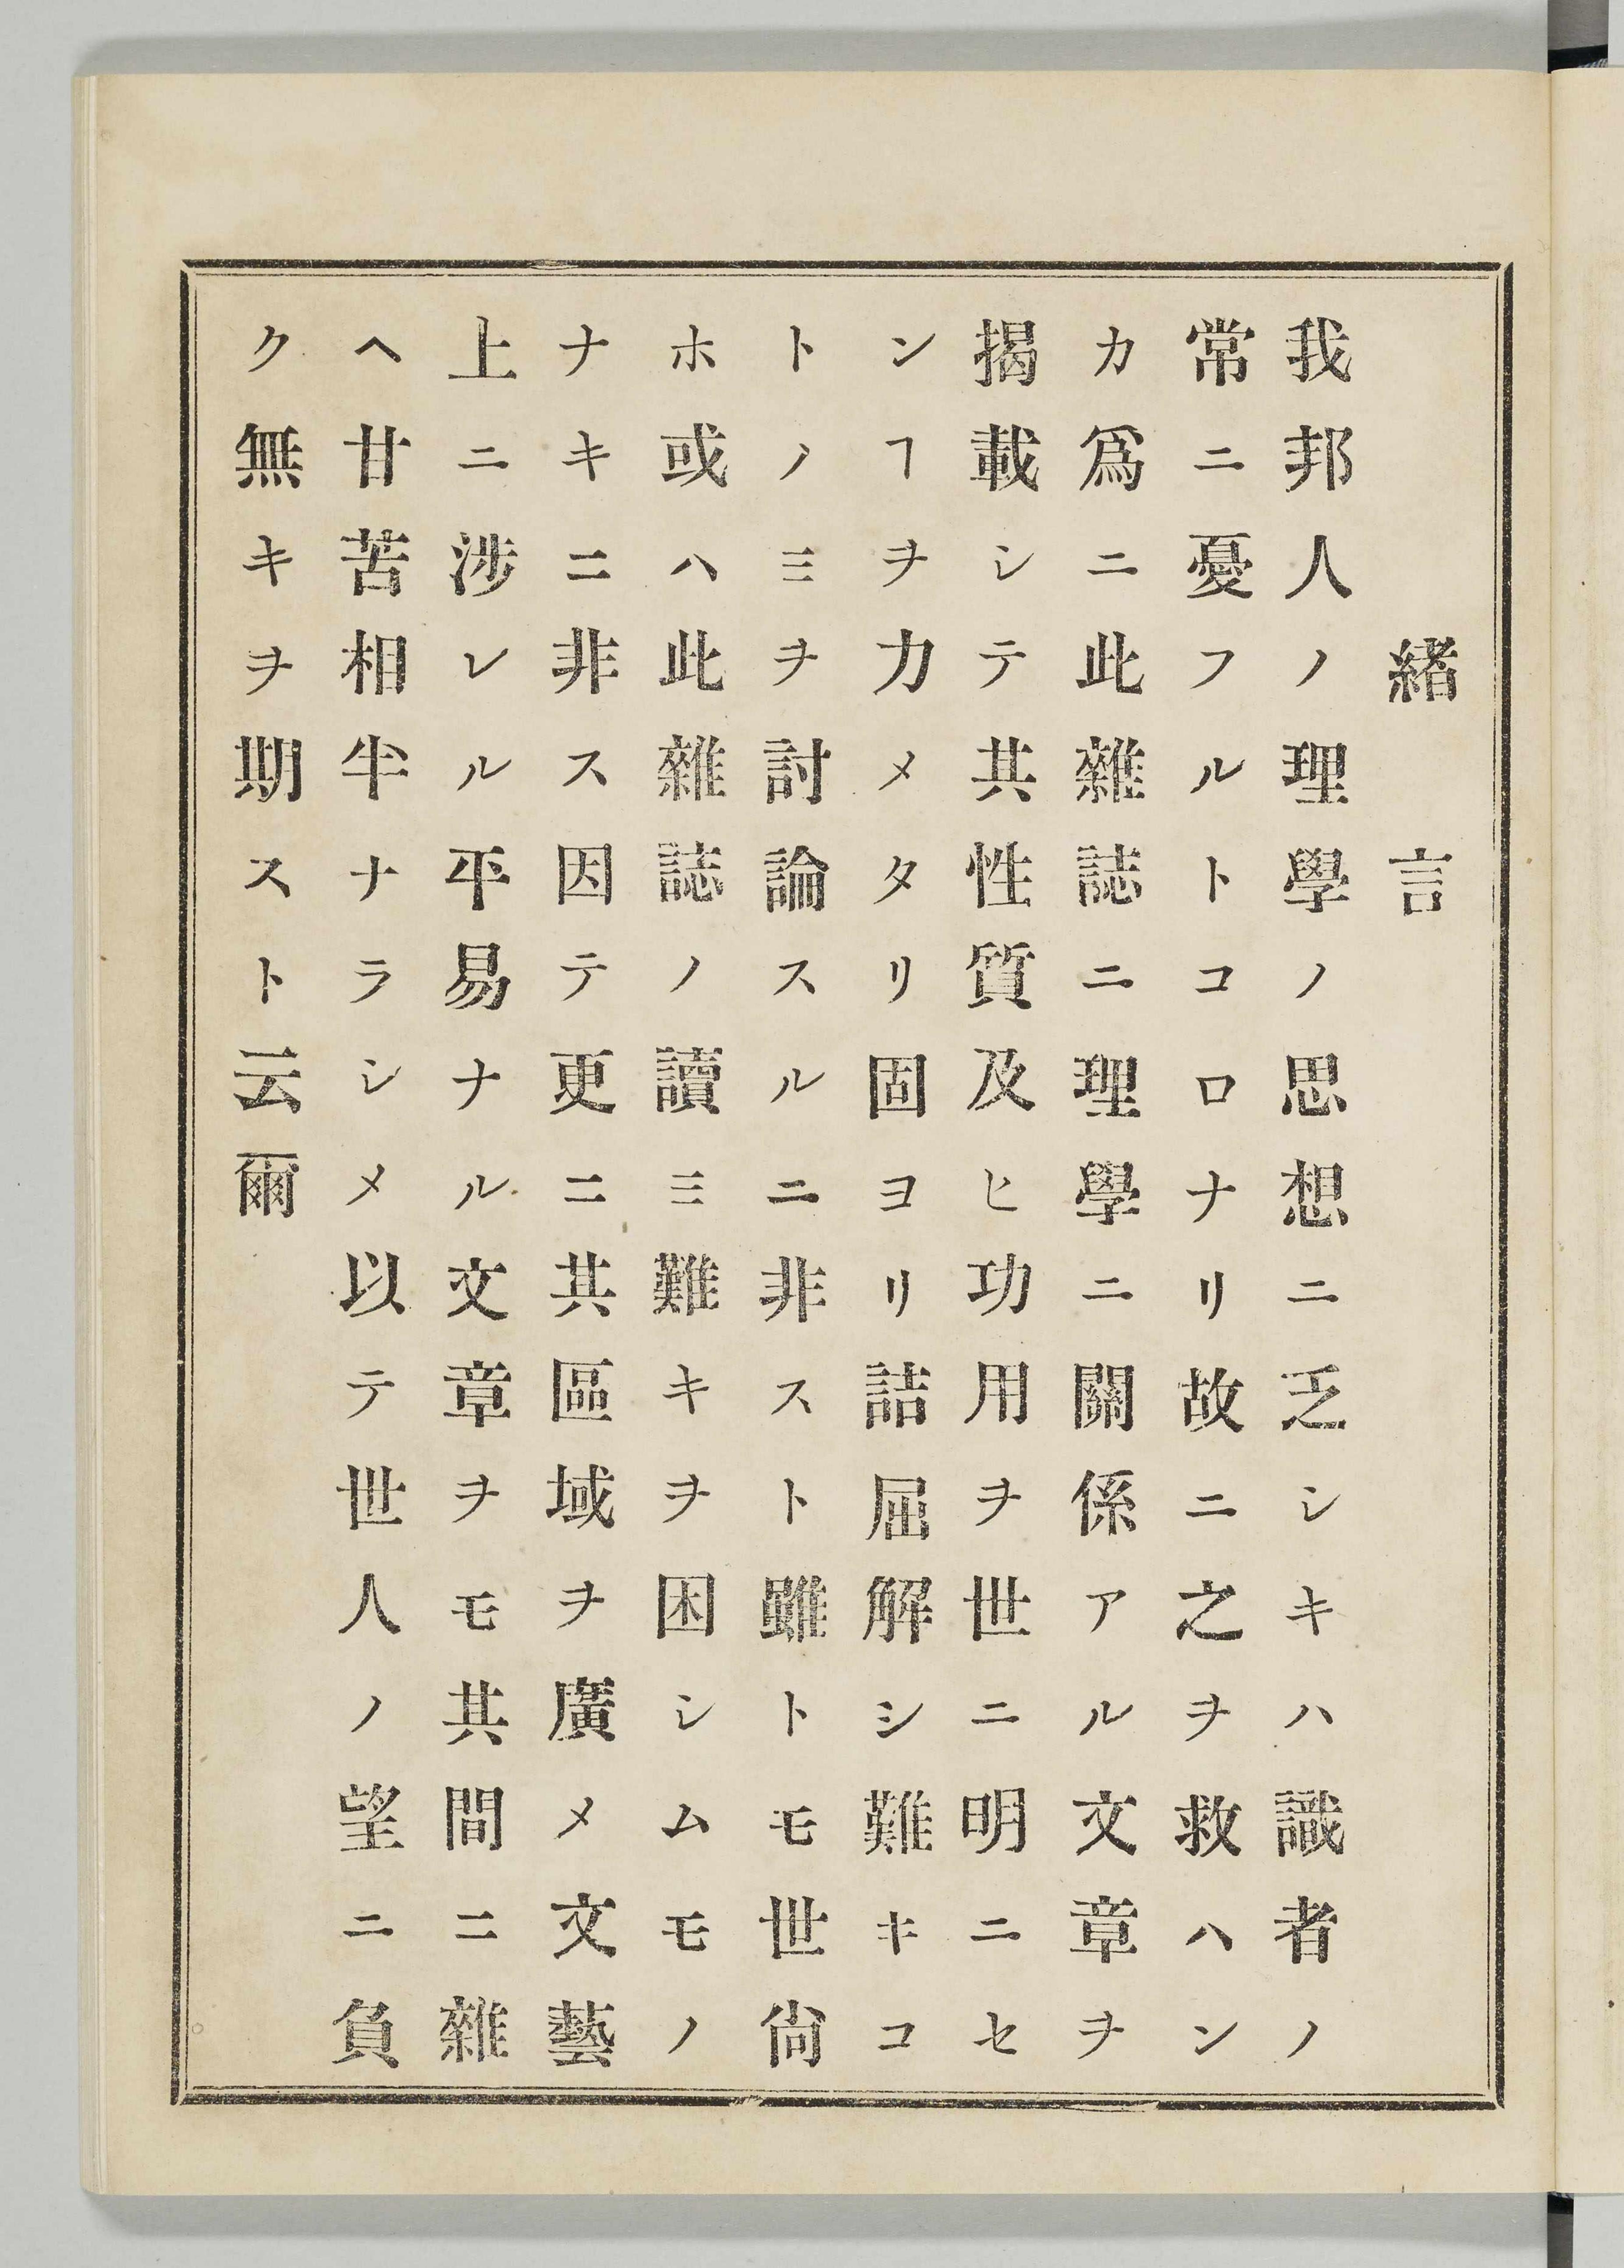 緒言
我邦人ノ理學ノ思想ニ乏シキハ識者ノ
常ニ憂フルトコロナリ故ニ之ヲ救ハン
カ爲ニ此雜誌ニ理學ニ關係アル文章ヲ
掲載シテ其性質及ヒ功用ヲ世ニ明ニセ
ンヿヲ力メタリ固ヨリ詰屈解シ難キコ
トノミヲ討論スルニ非スト雖トモ世尙
ホ或ハ此雜誌ノ讀ミ難キヲ困シムモノ
ナキニ非ス因テ更ニ其區域ヲ廣メ文藝
上ニ渉レル平易ナル文章ヲモ其間ニ雜
ヘ甘苦相半ナラシメ以テ世人ノ望ニ負
ク無キヲ期スト云爾